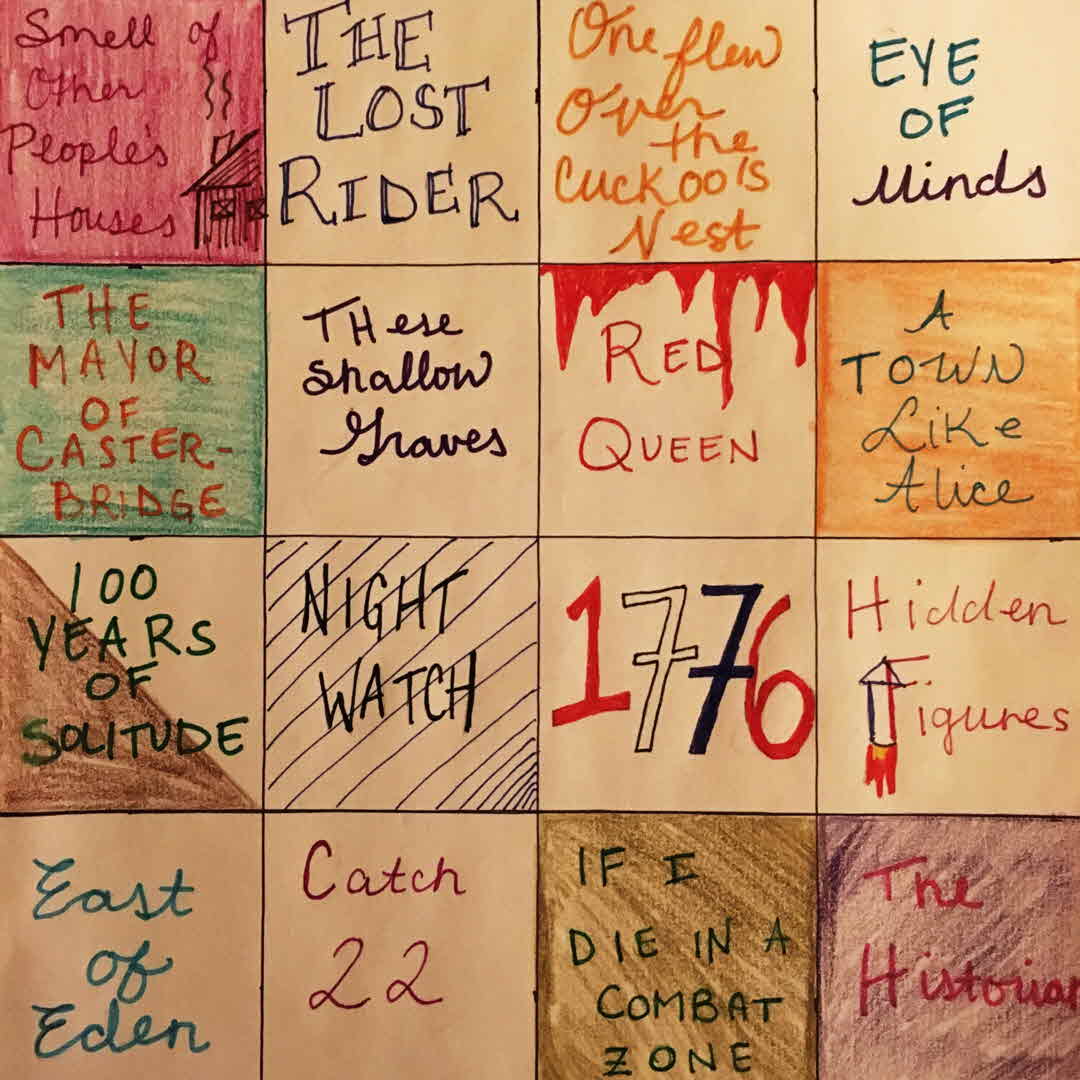 Smell of
Other
People's
Houses
THE
LOST
RIDER
One flew
Over
the
Cuckoo's
Nest
EYE
OF
Minds
THE
MAYOR
OF
CASTER-
BRIDGE
THese
Shallow
Graves
RED
QUEEN
A
TOWN
LiKe
Alice
100
YEARS
OF
SOLITUDE
NIGHT
WATCH
1776
Hidden
Figures
East
of
Eden
Catch
22
IF I
DIE IN A
COMBAT
ZONE
The
Historian